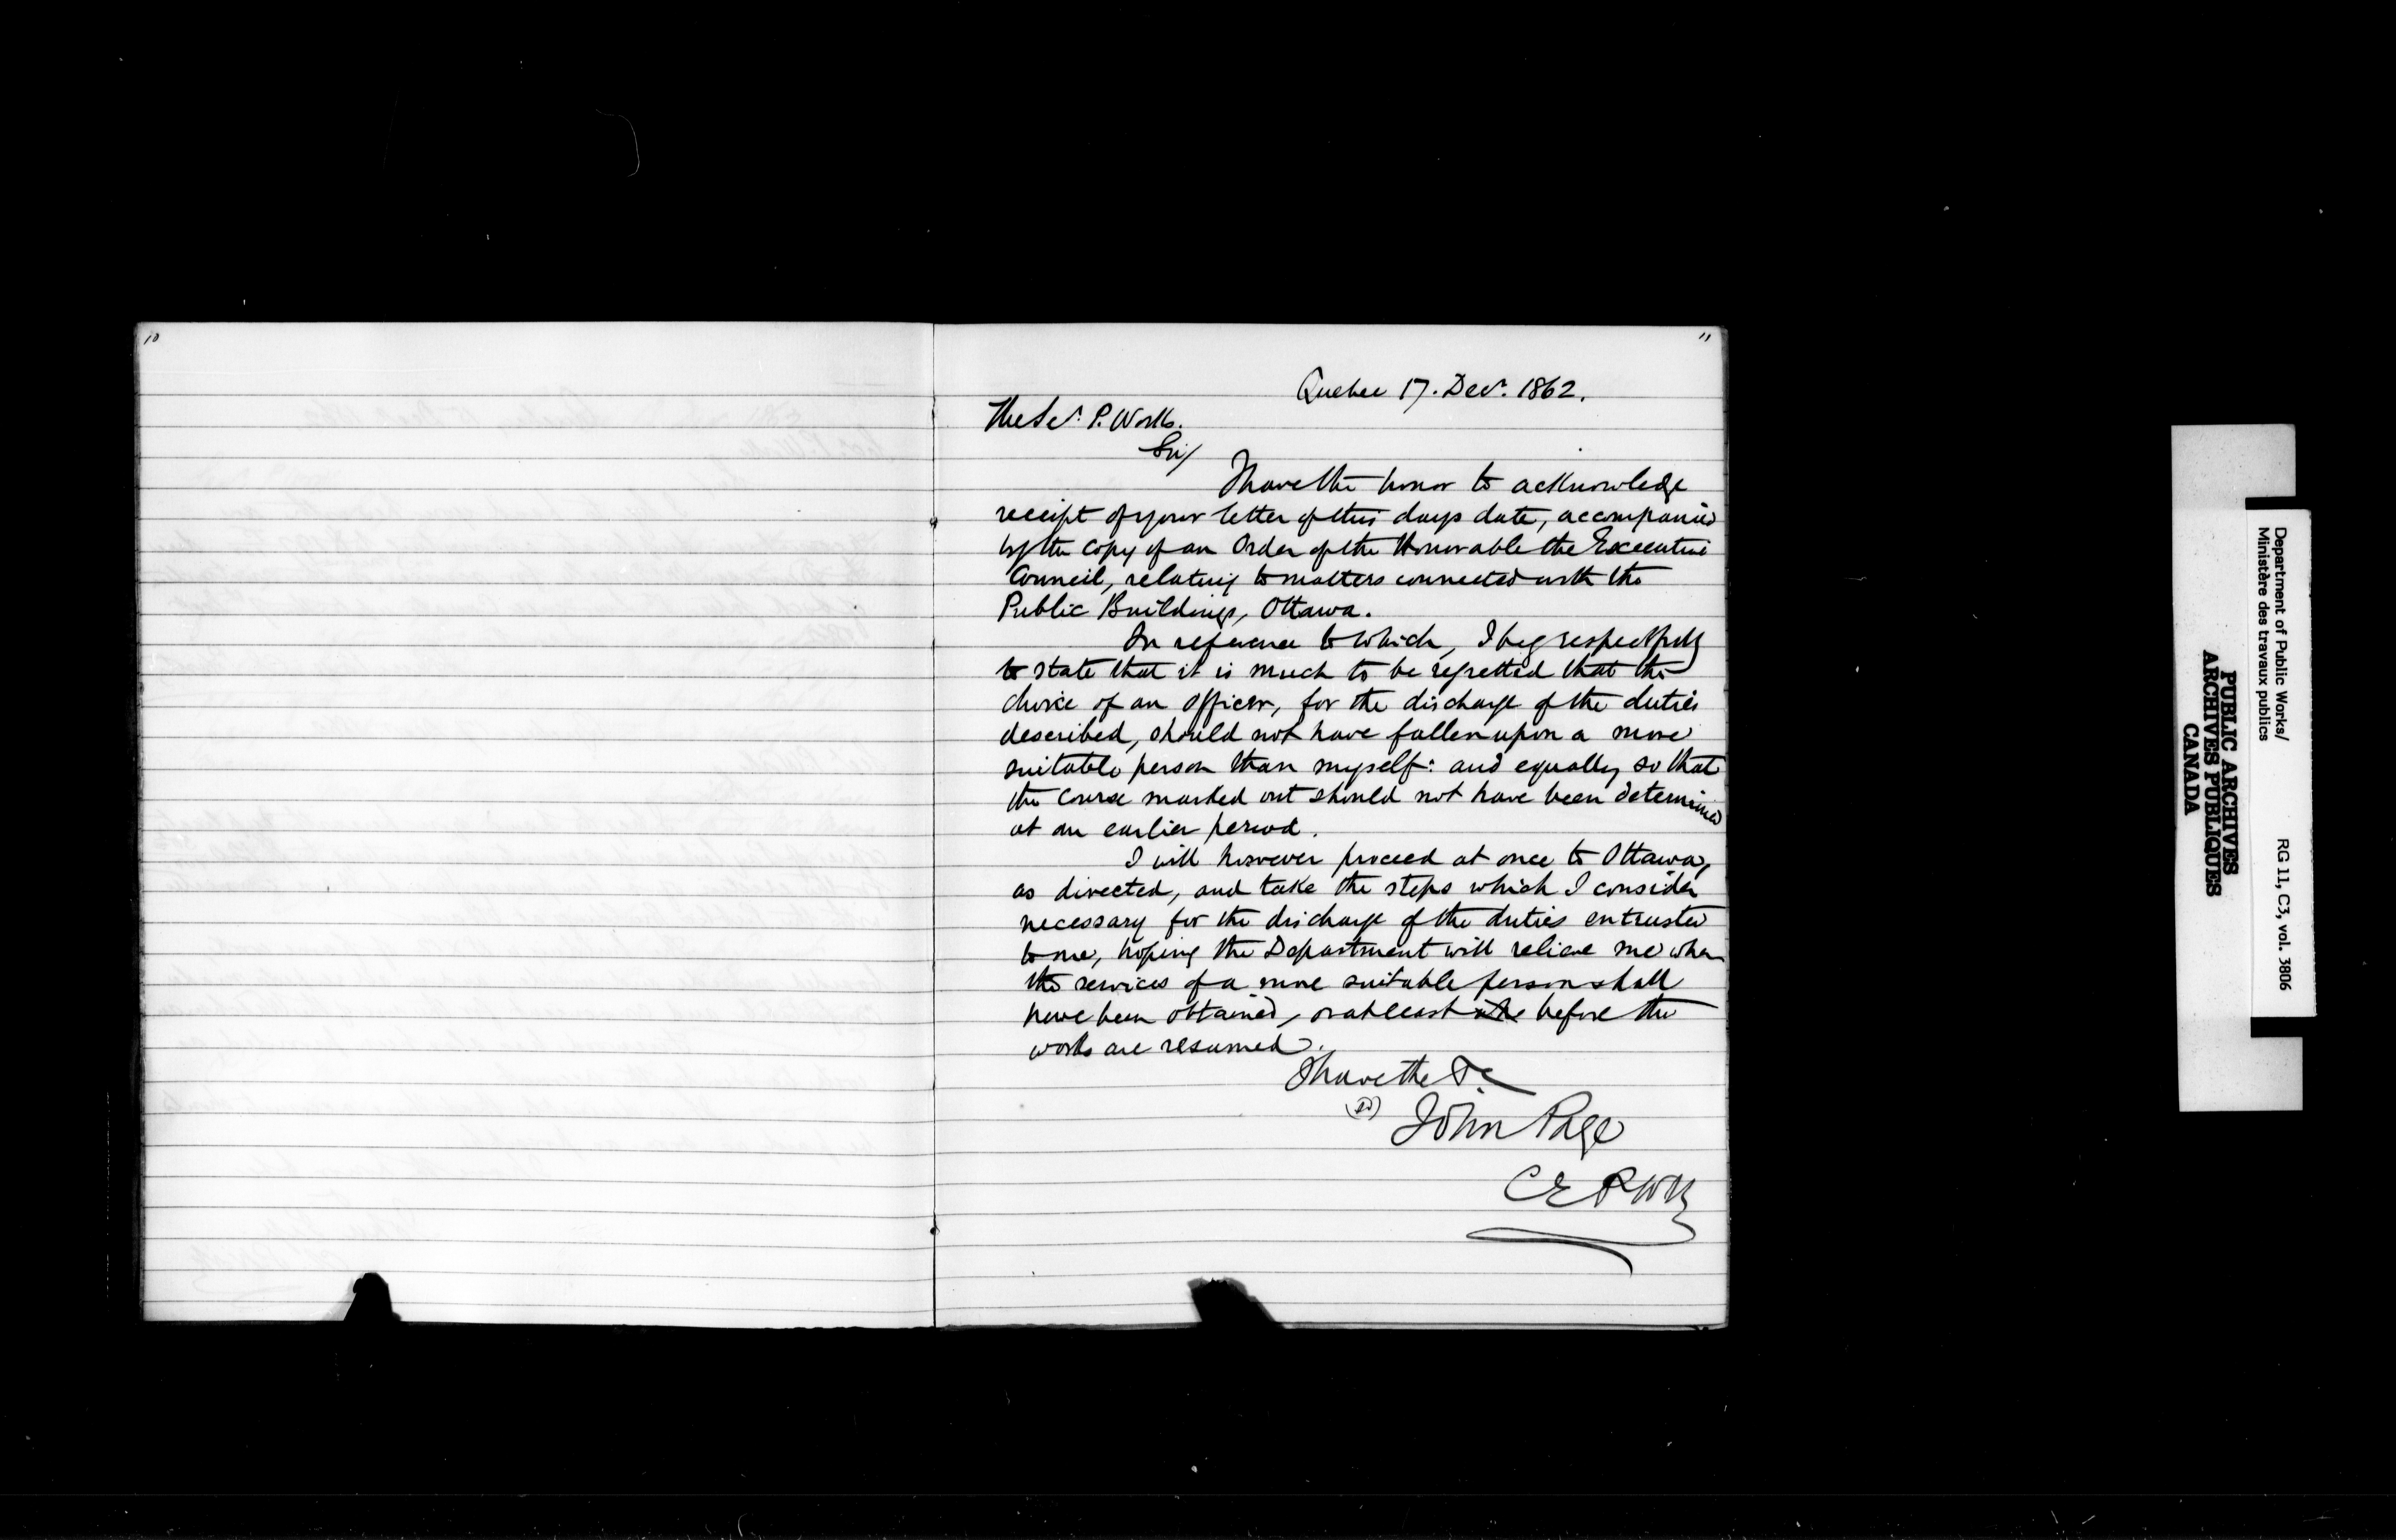 10
11
Quebec 17. Decr. 1862.
The Secy. P. Works.
Sir/
I have the honor to acknowledge
receipt of your letter of this days date, accompanied
by the copy of an Order of the Honorable the Executive
Council, relating to matters connected with the
Public Buildings, Ottawa.
In reference to which, I beg respectfully
to state that it is much to be regretted that the
choice of an officer, for the discharge of the duties
described, should not have fallen upon a more
suitable person than myself: and equally so that
the course marked out should not have been determined
at an earlier period.
I will however proceed at once to Ottawa,
as directed, and take the steps which I consider
necessary for the discharge of the duties entrusted
to me, hoping the Department will relieve me when
the services of a more suitable person shall
have been obtained, or at least before the
works are resumed.
I have the &c
(Sd) John Page
C E P Wks
Department of Public Works/
Ministère des travaux publics
RG 11, C3, vol. 3806
PUBLIC ARCHIVES
ARCHIVES PUBLIQUES
CANADA